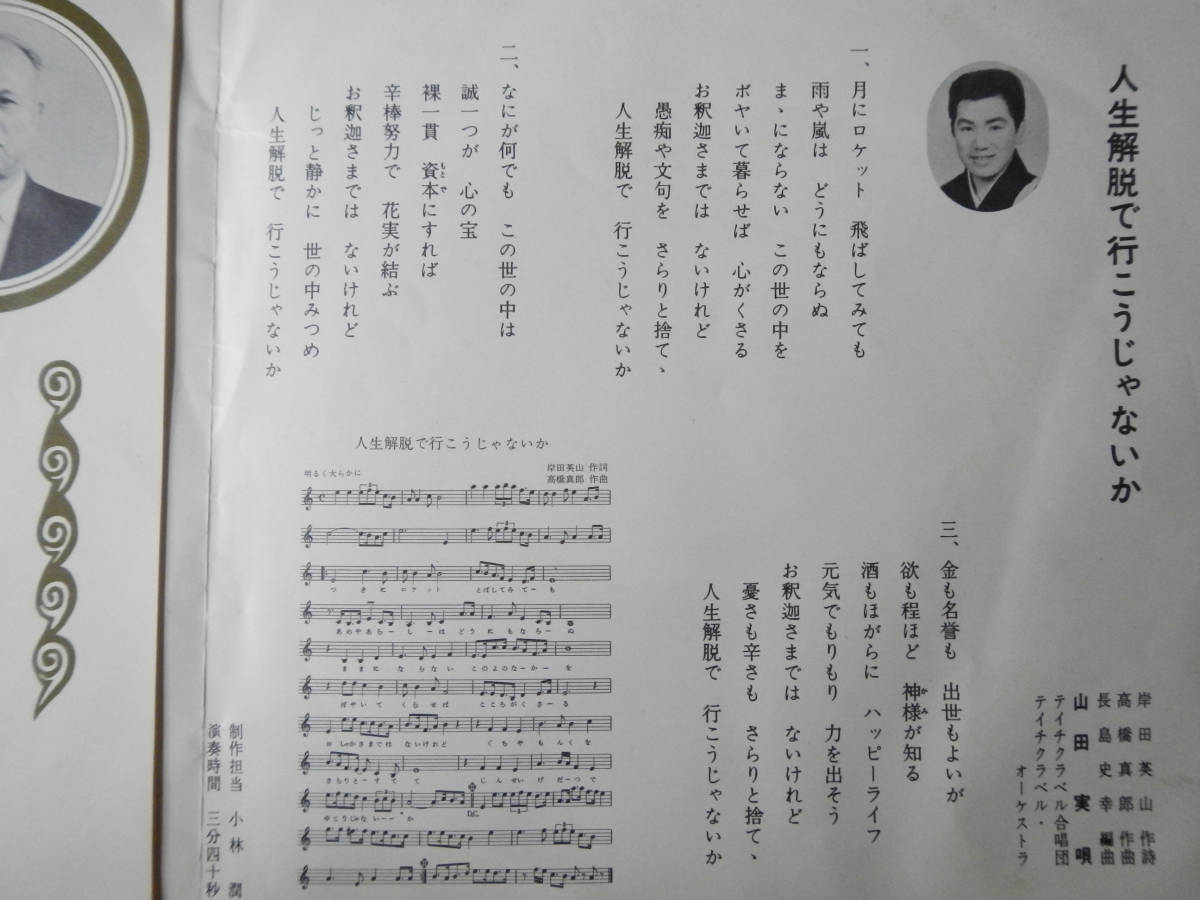 人生解脱で行こうじゃないか
岸田英山 作詩
高橋真郎 作曲
長島史幸 編曲
山田実 唄
テイチクラベル合唱団
テイチクラベル・
オーケストラ
一、月にロケット 飛ばしてみても
雨や嵐は どうにもならぬ
まゝにならない この世の中を
ボヤいて暮らせば 心がくさる
お釈迦さまでは ないけれど
愚痴や文句を さらりと捨てゝ
人生解脱で 行こうじゃないか
二、なにが何でも この世の中は
誠一つが 心の宝
裸一貫 資本にすれば
もとで
辛棒努力で 花実が結ぶ
お釈迦さまでは ないけれど
じっと静かに 世の中みつめ
人生解脱で 行こうじゃないか
三、金も名誉も 出世もよいが
欲も程ほど 神様が知る
かみ
酒もほがらに ハッピーライフ
元気でもりもり 力を出そう
お釈迦さまでは ないけれど
憂さも辛さも さらりと捨てゝ
人生解脱で 行こうじゃないか
人生解脱で行こうじゃないか
明るく大らかに
岸田英山 作詞
高橋真郎 作曲
つきにロケット とばしてみてーも
あめやあらーしーはどうにもならーぬ
ままに ならない このよのなーかーを
ぼやいて くらせば こころがくさーる
おしゃかさまでは ないけれど くちやもんくを
さらりとーすてて じんせいげだーつで
ゆこうじゃないーーか
制作担当 小林 潤
演奏時間 三分四十秒